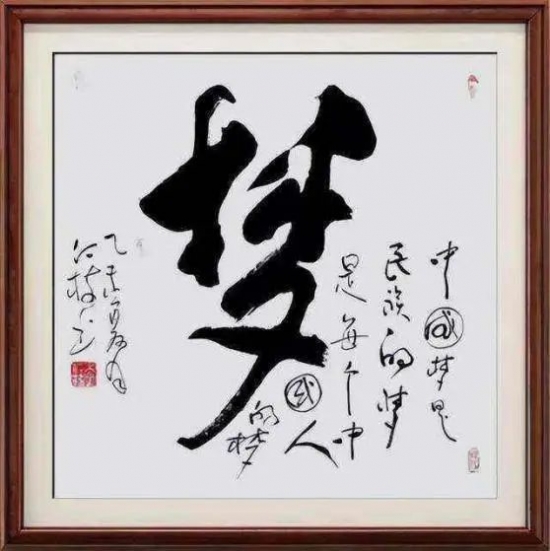 梦
中國梦是
民族的梦
是每个中
國人
的梦
乙未